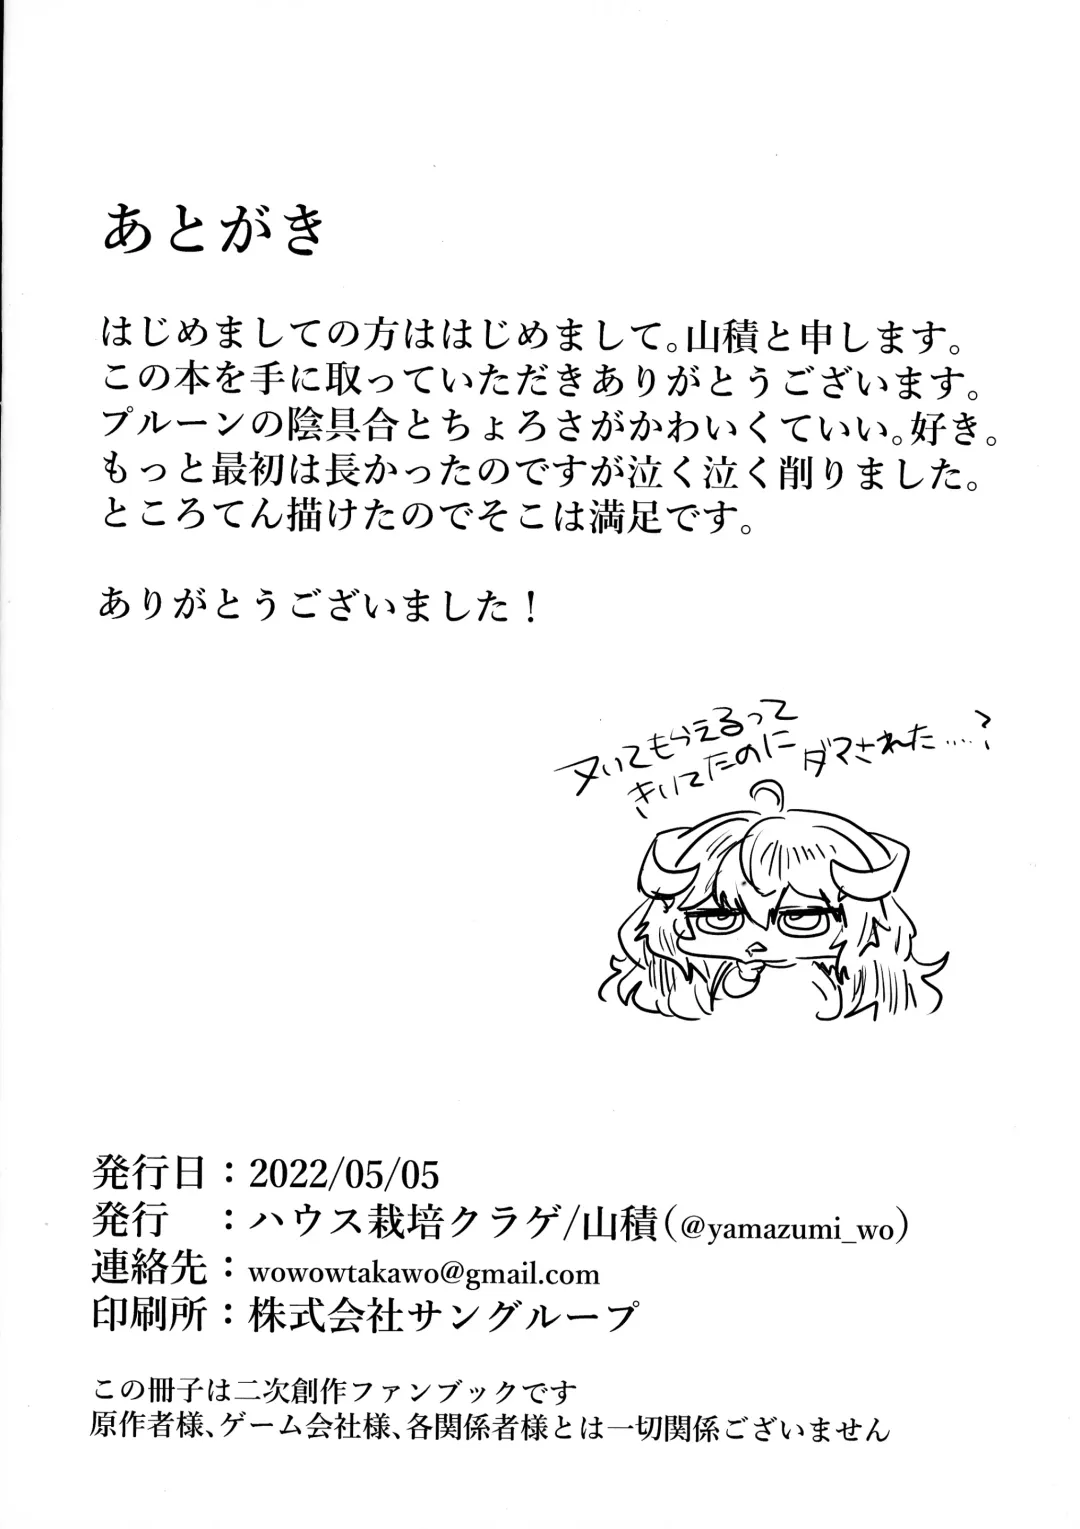 あとがき
はじめましての方ははじめまして。山積と申します。
この本を手に取っていただきありがとうございます。
プルーンの陰具合とちょろさがかわいくていい。好き。
もっと最初は長かったのですが泣く泣く削りました。
ところてん描けたのでそこは満足です。
ありがとうございました！
ヌいてもらえるって
きいてたのに
ダマされた……？
発行日：2022/05/05
発行　：ハウス栽培クラゲ/山積（@yamazumi_wo）
連絡先：wowowtakawo@gmail.com
印刷所：株式会社サングループ
この冊子は二次創作ファンブックです
原作者様、ゲーム会社様、各関係者様とは一切関係ございません